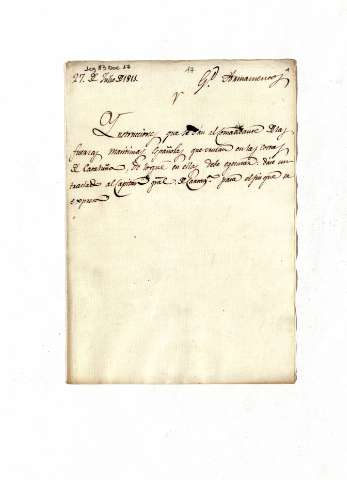 Leg 83 Doc 17
17
27. D Julio D 1811.
Gl Armamentos
Ynstrucciones que se dan al Comandante D las
fuerzas maritimas Españolas que cruzan en las costas
D Cataluña, de lo que en ellas debe egecutar: dase un
traslado al Capitan gral. D para el fin que se
expresa